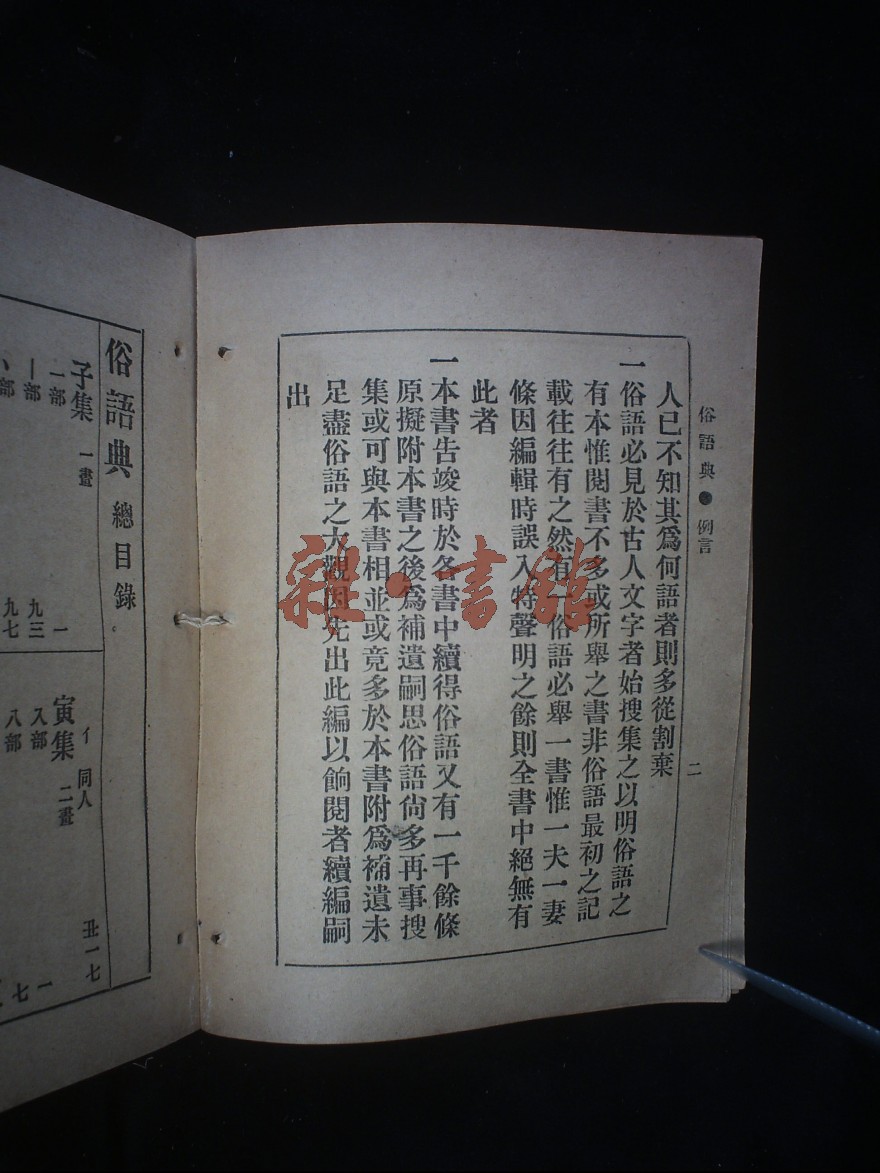 俗語典●例言
二
人已不知其爲何語者則多從割棄
一俗語必見於古人文字者始搜集之以明俗語之
有本惟閱書不多或所舉之書非俗語最初之記
載往往有之然有一俗語必舉一書惟一夫一妻
條因編輯時誤入特聲明之餘則全書中絕無有
此者
一本書告竣時於各書中續得俗語又有一千餘條
原擬附本書之後爲補遺嗣思俗語尙多再事搜
集或可與本書相並或竟多於本書附爲補遺未
足盡俗語之大觀因先出此編以餉閱者續編嗣
出
俗語典 總目錄
子集 一畫
一部 一
丨部 九三
丶部 九七
寅集 二畫
亻同人 丑一七
入部 一
八部 七
雜·書館